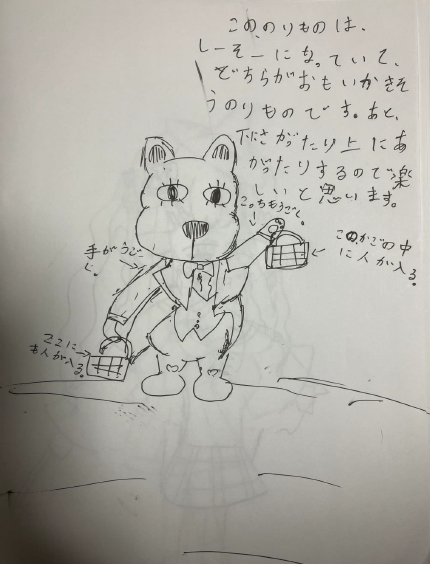 この、のりものは、
しーそーになっていて、
どちらがおもいかきそ
うのりものです。あと、
下にさがったり上にあ
がったりするので楽
しいと思います。
こっちもうごく。
このかごの中
に人が入る。
手がうご
く。
ここに
も人が入る。